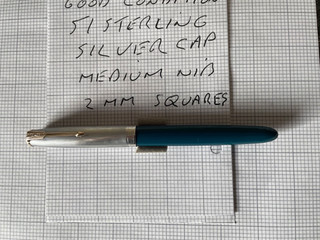 GOOD CONDITION
51 STERLING
SILVER CAP
MEDIUM NIB
2 MM SQUARES